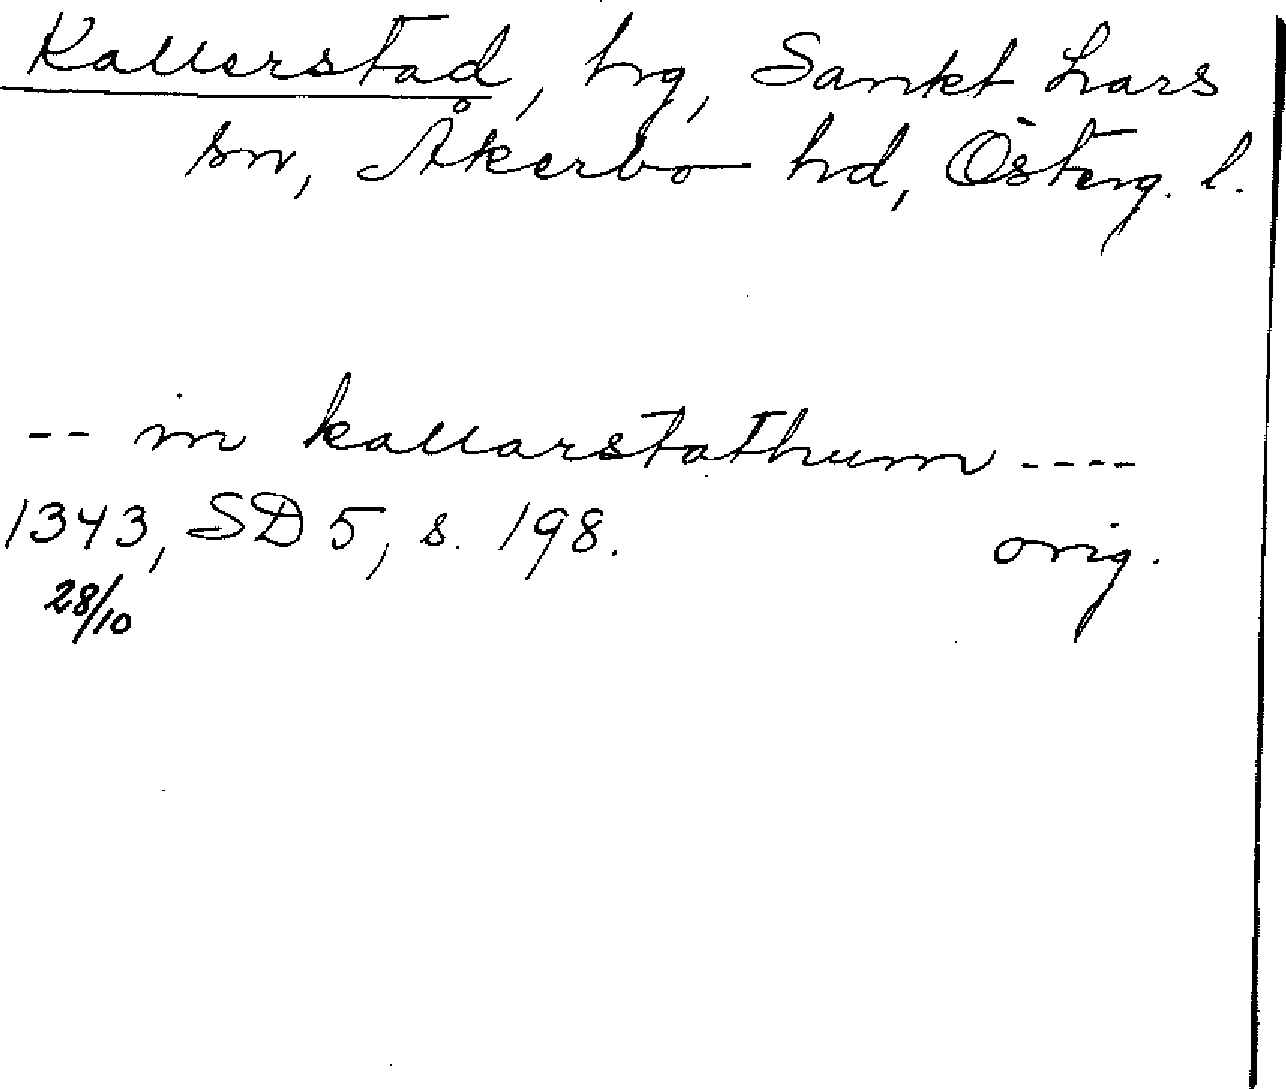 Kallerstad, hg, Sankt Lars
sn, Åkerbo hd, Österg. l.
-- in kallarstathum ----
1343, SD 5, s. 198. orig.
28/10